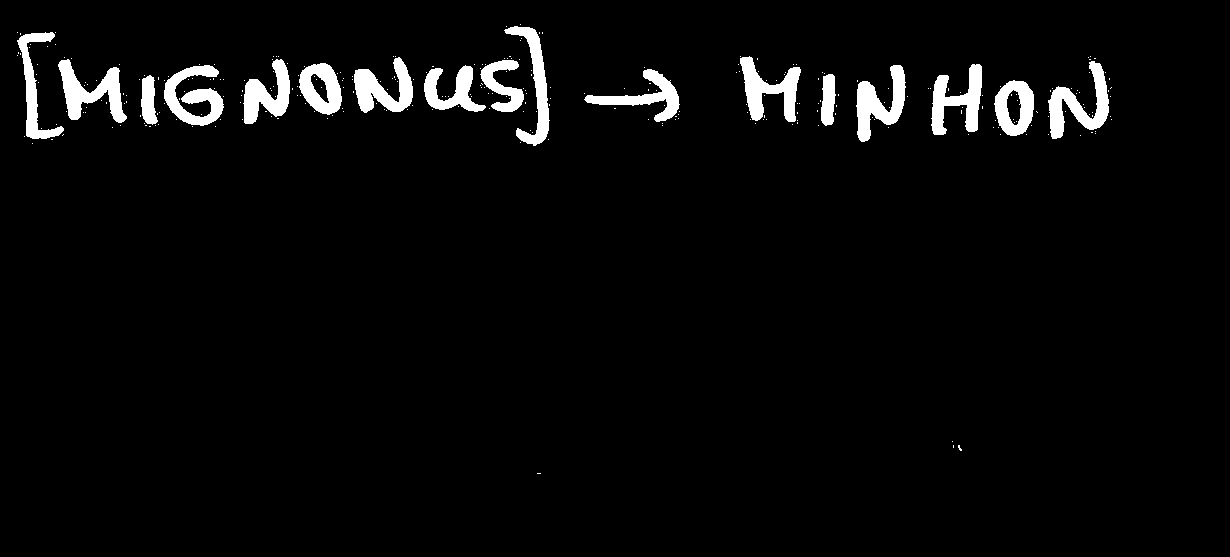 [MIGNONUS] → MINHON